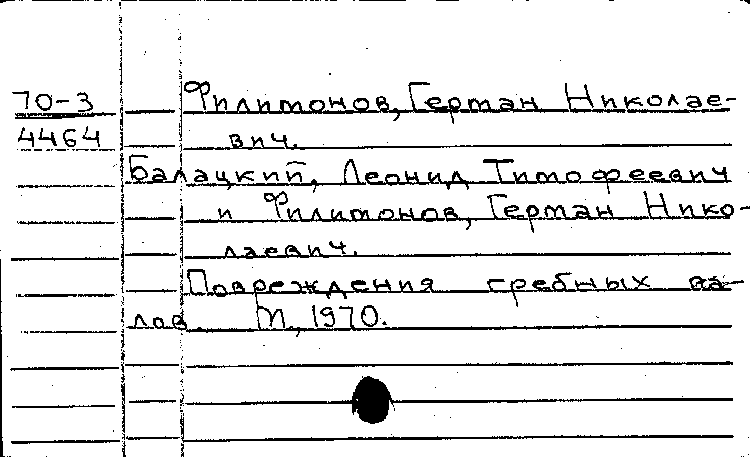 70-3 Филимонов, Герман Николае-
4464 вич.
Балацкий, Леонид Тимофеевич
и Филимонов, Герман Нико-
лаевич.
Повреждения гребных ва-
лов. М., 1970.